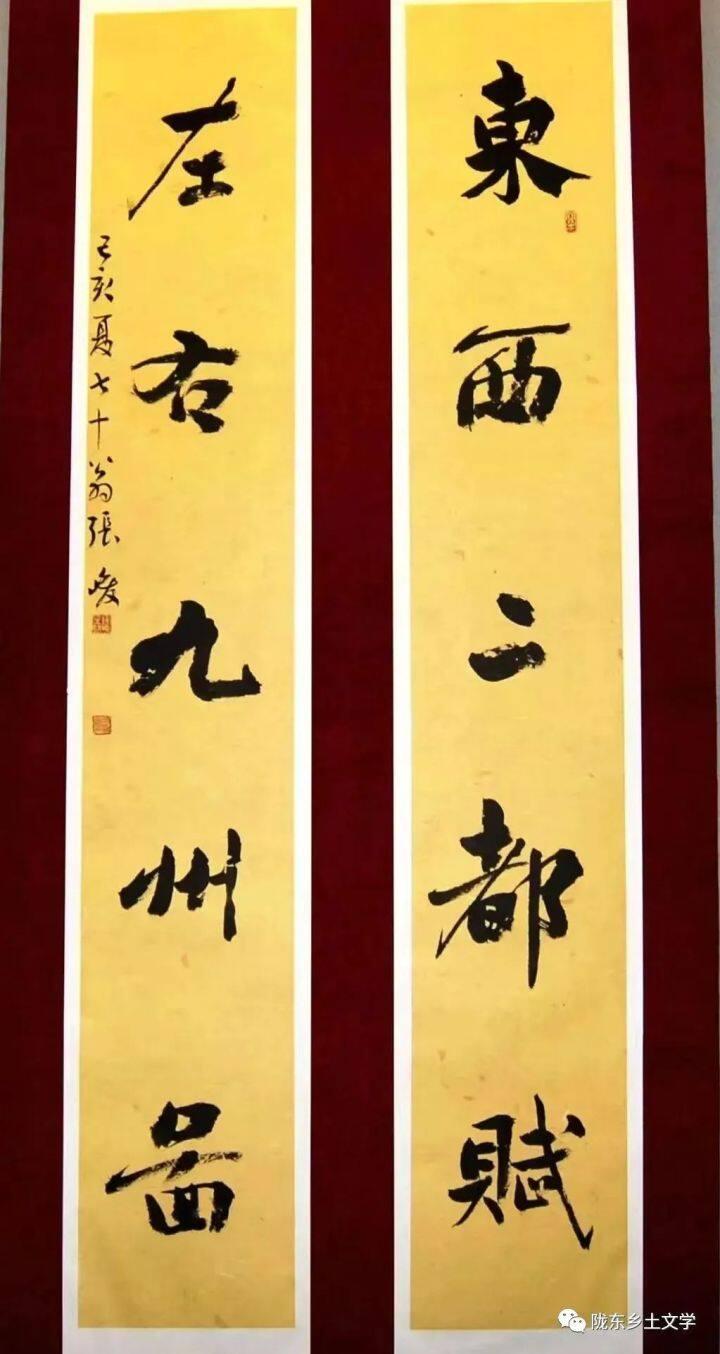 東西二都賦
左右九州啚
己亥夏七十翁張峻
陇东乡土文学